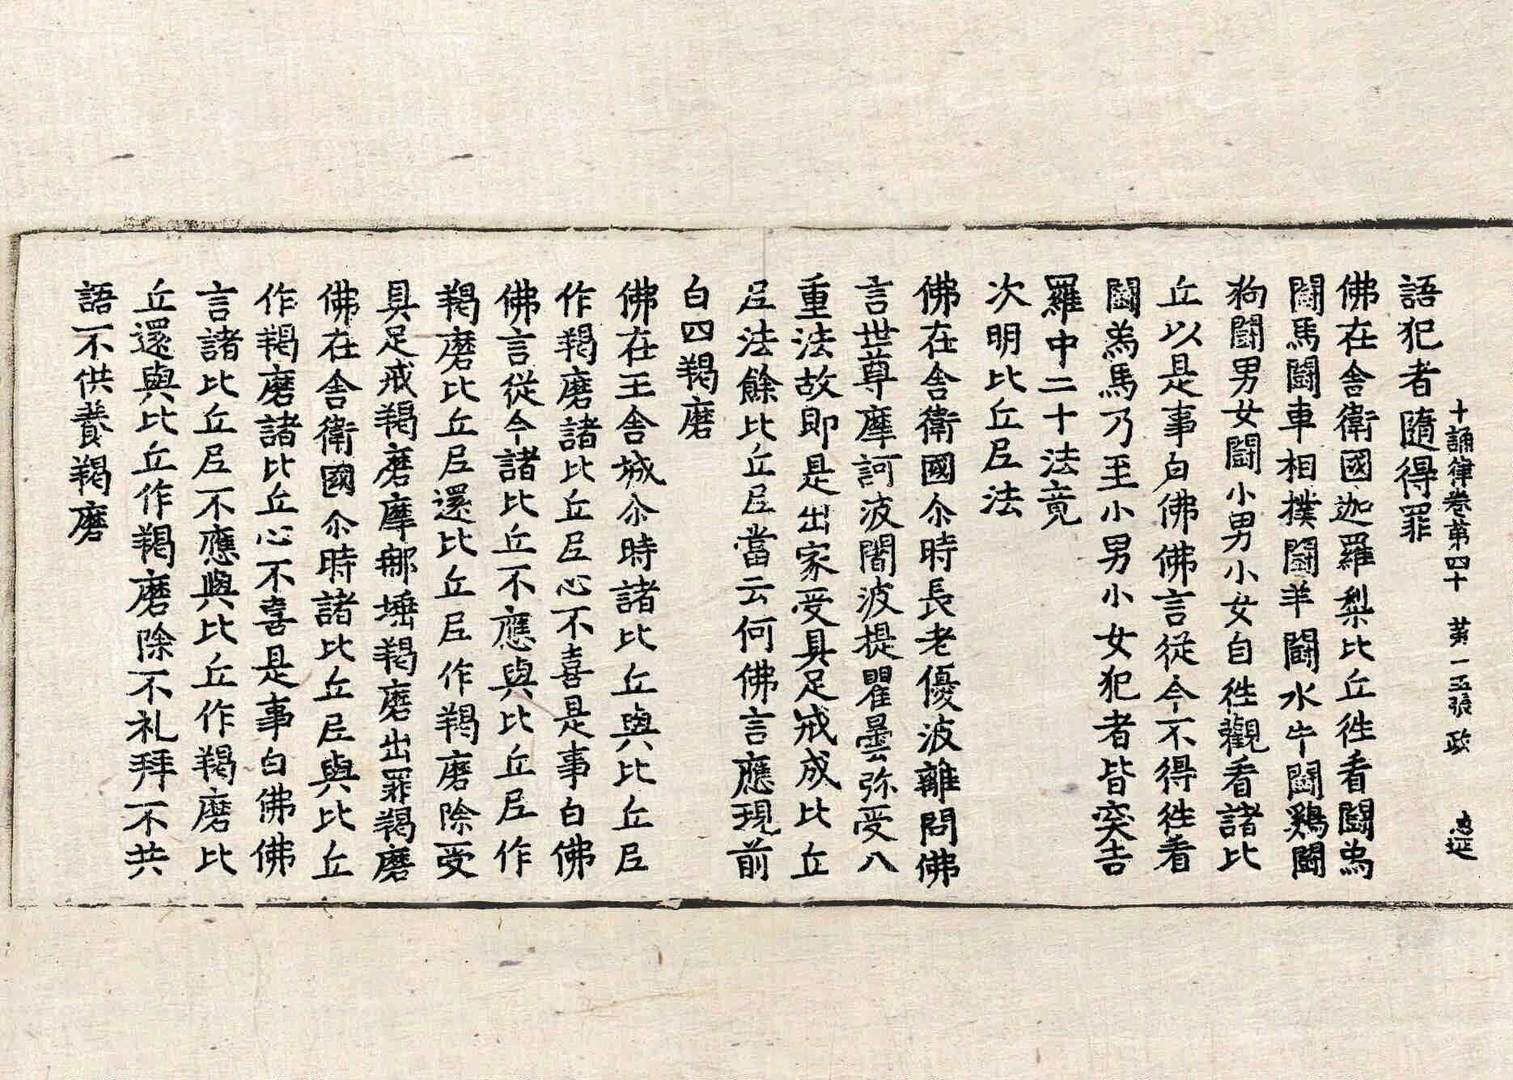 十誦律卷第四十　第一五張　政　惠延
語犯者隨得罪
佛在舍衛國迦羅梨比丘徃看鬪烏
鬪馬鬪車相撲鬪羊鬪水牛鬪鷄鬪
狗鬪男女鬪小男小女自徃觀看諸比
丘以是事白佛佛言從今不得徃看
鬪烏馬乃至小男小女犯者皆突吉
羅中二十法竟
次明比丘尼法
佛在舍衛國尒時長老優波離問佛
言世尊摩訶波闍波提瞿曇弥受八
重法故即是出家受具足戒成比丘
尼法餘比丘尼當云何佛言應現前
白四羯磨
佛在王舍城尒時諸比丘與比丘尼
作羯磨諸比丘尼心不喜是事白佛
佛言從今諸比丘不應與比丘尼作
羯磨比丘尼還比丘尼作羯磨除受
具足戒羯磨摩那埵羯磨出罪羯磨
佛在舍衛國尒時諸比丘尼與比丘
作羯磨諸比丘心不喜是事白佛佛
言諸比丘尼不應與比丘作羯磨比
丘還與比丘作羯磨除不礼拜不共
語不供養羯磨